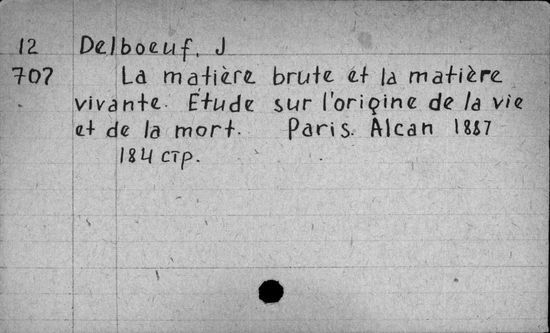 12 Delboeuf. J
707 La matière brute et la matière
vivante. Étude sur l'origine de la vie
et de la mort. Paris. Alcan 1887
184 стр.